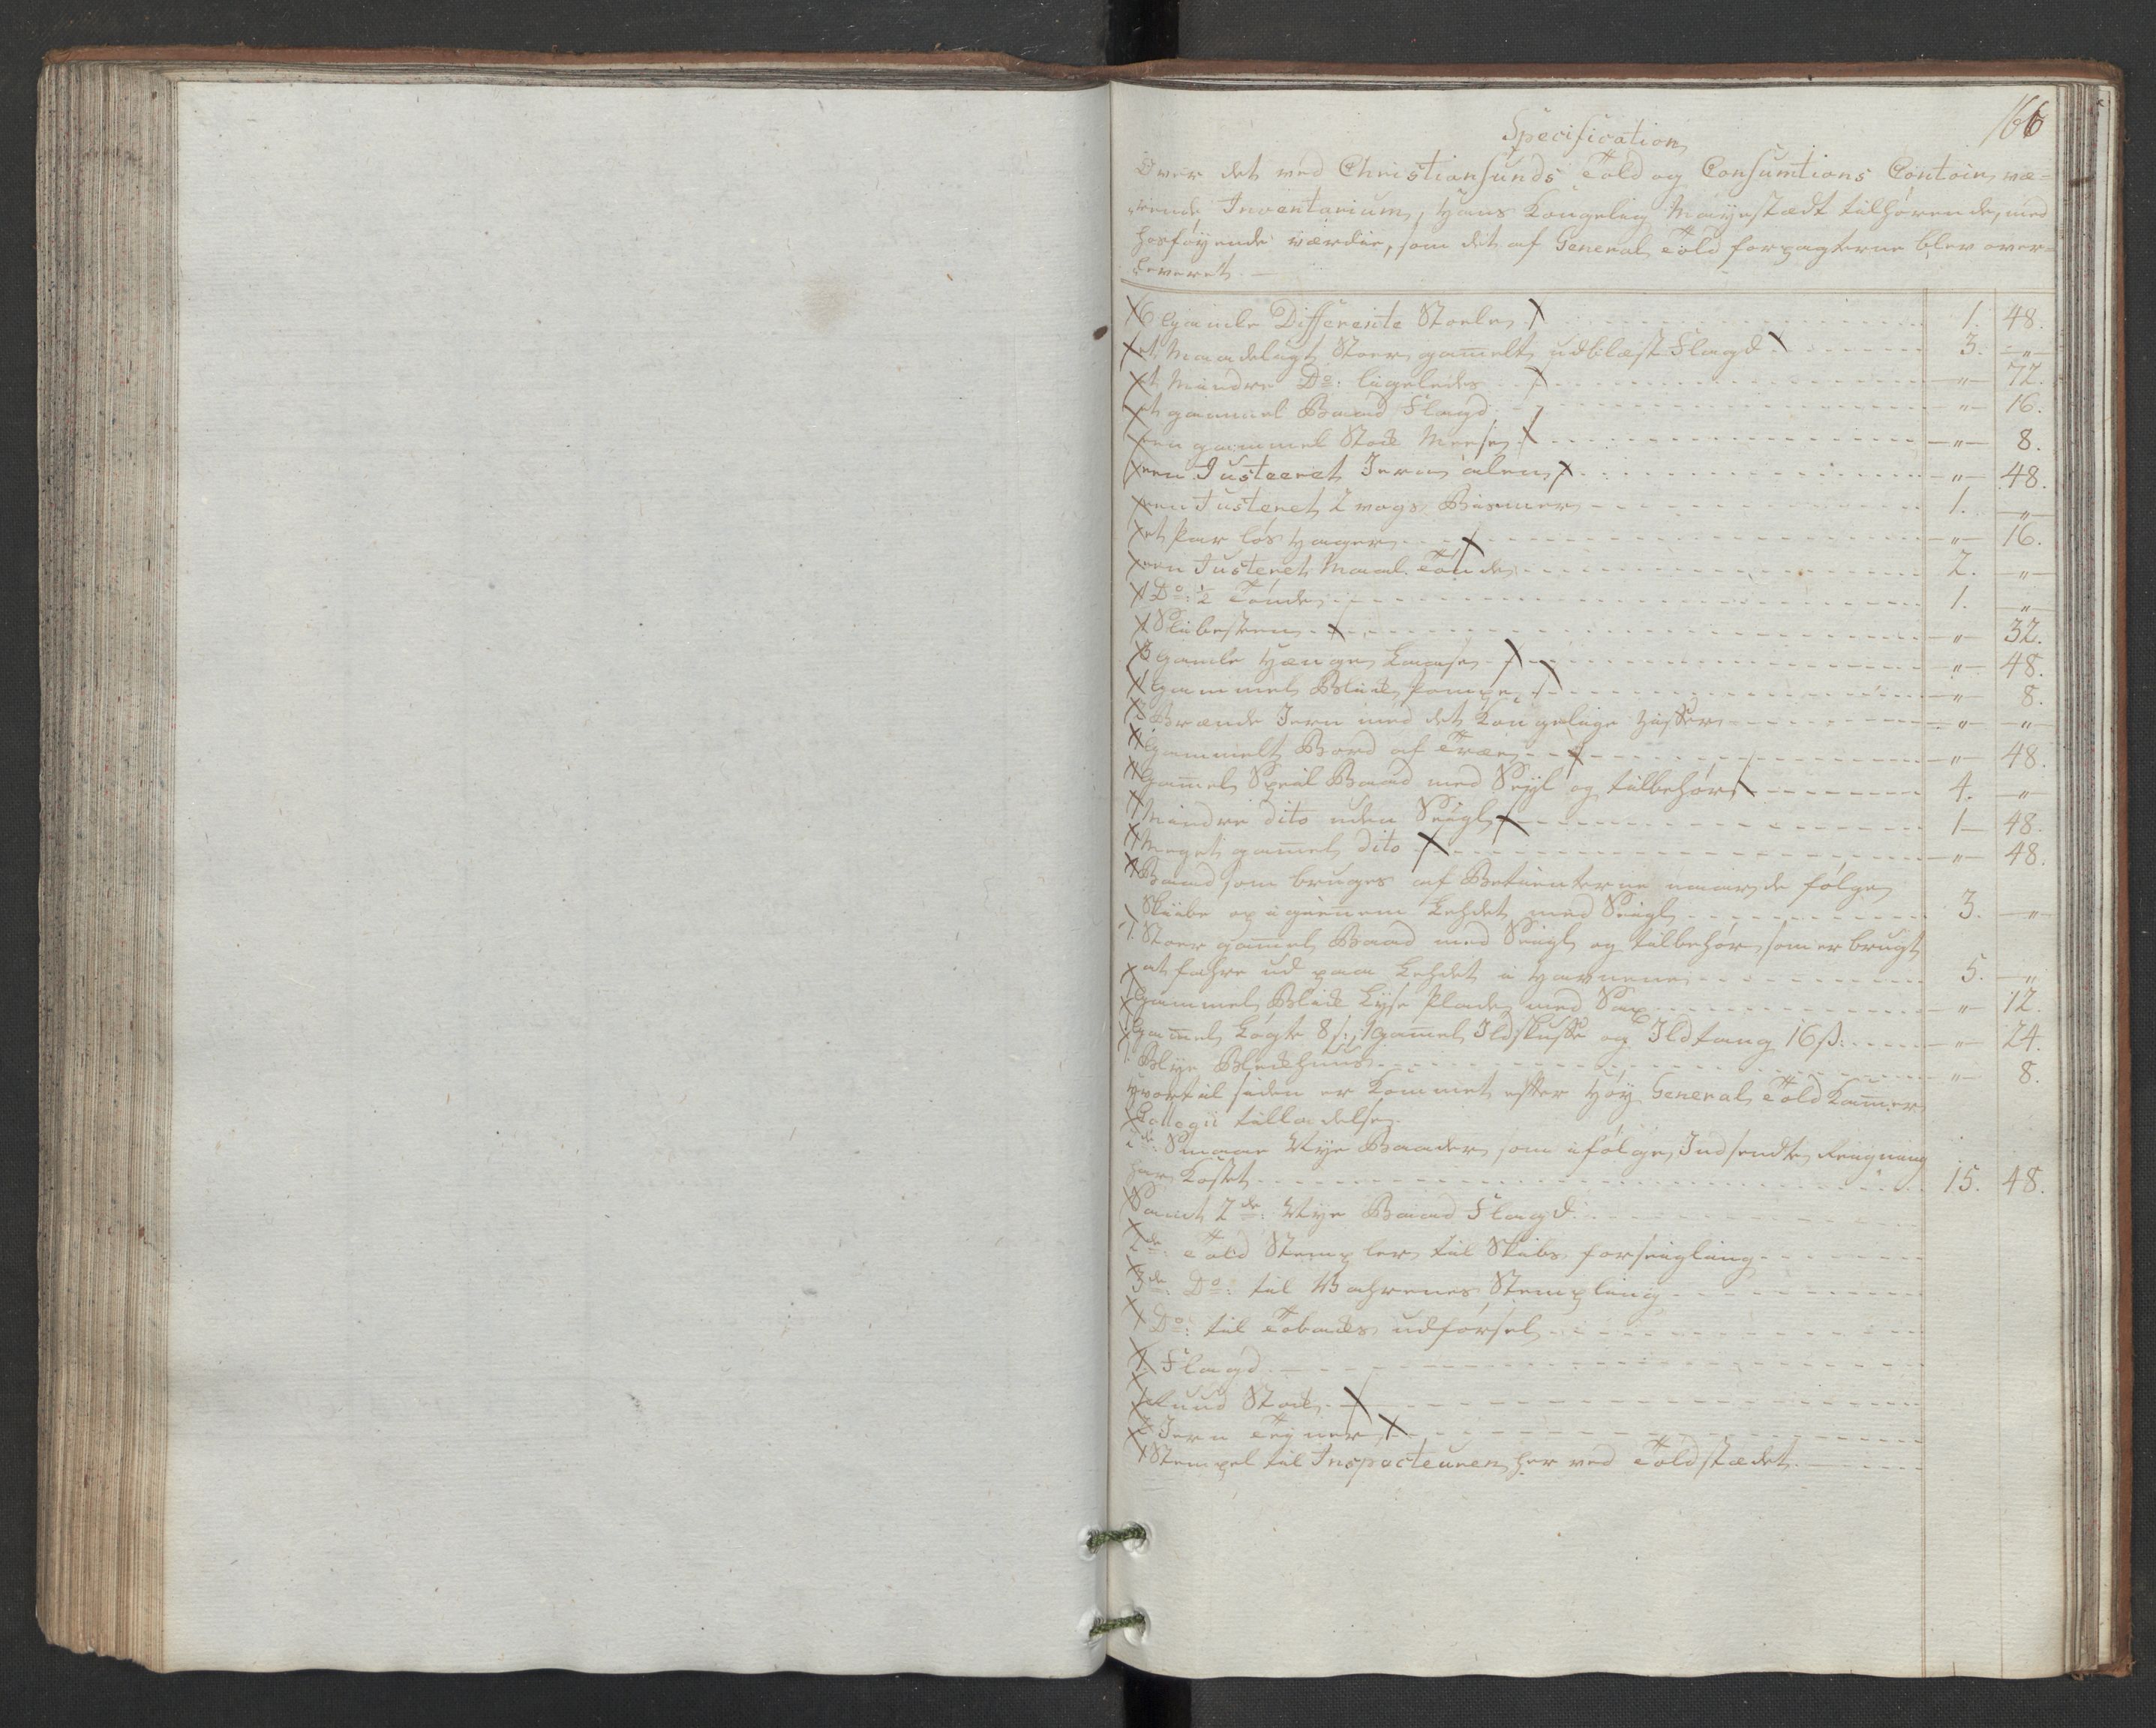 166
Specification
Over det ved Christiansunds Told og Consumtions Contoir væ-
rende Inventarium, Hans Kongelig Mayestædt tilhørende, med
hosføyende værdie, som det af General Told forpagterne blev over-
leveret. —
6 Gamle Differente Stoele 1. 48.
et Maadeligt Stoer gam̅elt udblæst Flagd 3. -"-
et Mindre Do: ligeledes -"- 72.
et gammel Baad Flagd -"- 16.
en gammel Stock -"- 8.
een Justeeret Jern alen -"- 48.
een Justeret 2 vogs Bismer 1. -"-
et Par løs Hager -"- 16.
een Justeret Maal Tønde 2. -"-
1 Do: ½ Tønde 1. -"-
1 Slibesteen -"- 32.
3 Gamle Hænge Laase -"- 48.
1 Gammel Blick Pompe -"- 8.
Brænde Jern med det Kongelige Ziffer -"- -"-
1 Gammelt Bord af Træe -"- 48.
1 Gam̅el Speil Baad med Seigl og tilbehør 4. -"-
1 Mindre dito uden Seigl 1- 48.
1 Meget gam̅el dito -"- 48.
1 Baad som bruges af Betienterne naar de følge
Skibe op igien̅em Lehdet med Seigl 3. -"-
1. Stoer gam̅el Baad med Seigl og tilbehør, som er brugt
at fahre ud paa Lehdet i Havnene 5. -"-
1 Gammel Blick Lyse Plade med Sax -"- 12.
1 Gam̅el Løgte 8 s:, 1 gam̅el Ildskuffe og Ildtang 16 s: -"- 24.
1. Blye Blechhuus -"- 8.
Hvortil siden er kommet efter Høy General Told Kam̅er
Collegii tilladelse.
2de: Smaae Nye Baader, som ifølge Indsendte Reigning
har Kostet 15. 48.
Samt 2de: Nye Baad Flagd.
2de: Told Stempler til Skibs forseigling
3de: Do: til Vahrenes Stempling
1 Do: til Tobaks udførsel
1. Flagd
1 Rund Stock
2 Jern Teyner
1 Stempel til Inspecteuren her ved Toldstædet.